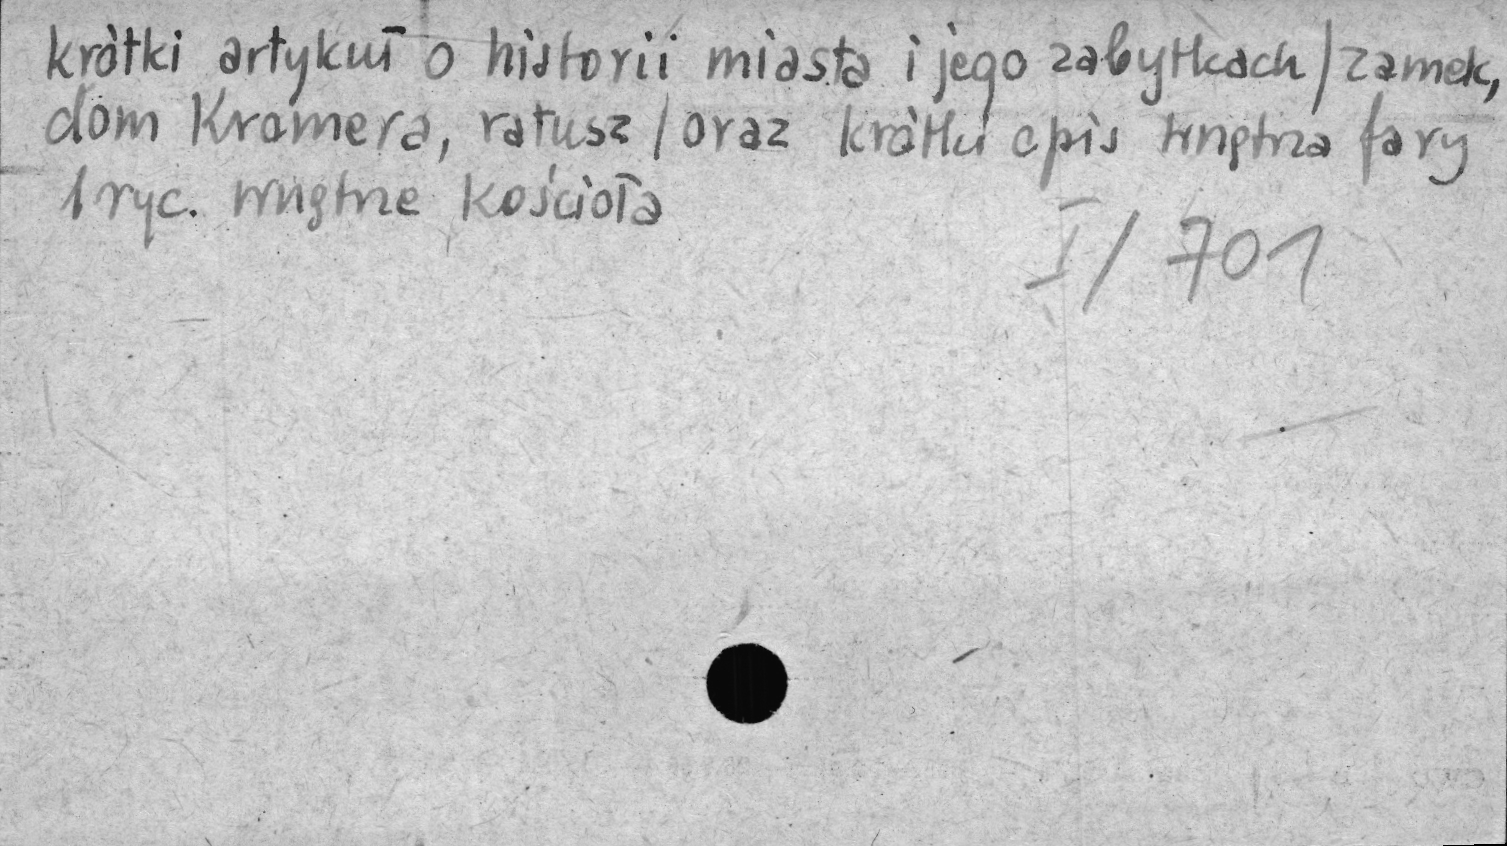 krótki artykuł o historii miasta i jego zabytkach /zamek,
dom Kromera, ratusz / oraz krótki opis wnętrza fary
1 ryc. wnętrze kościoła
I/701